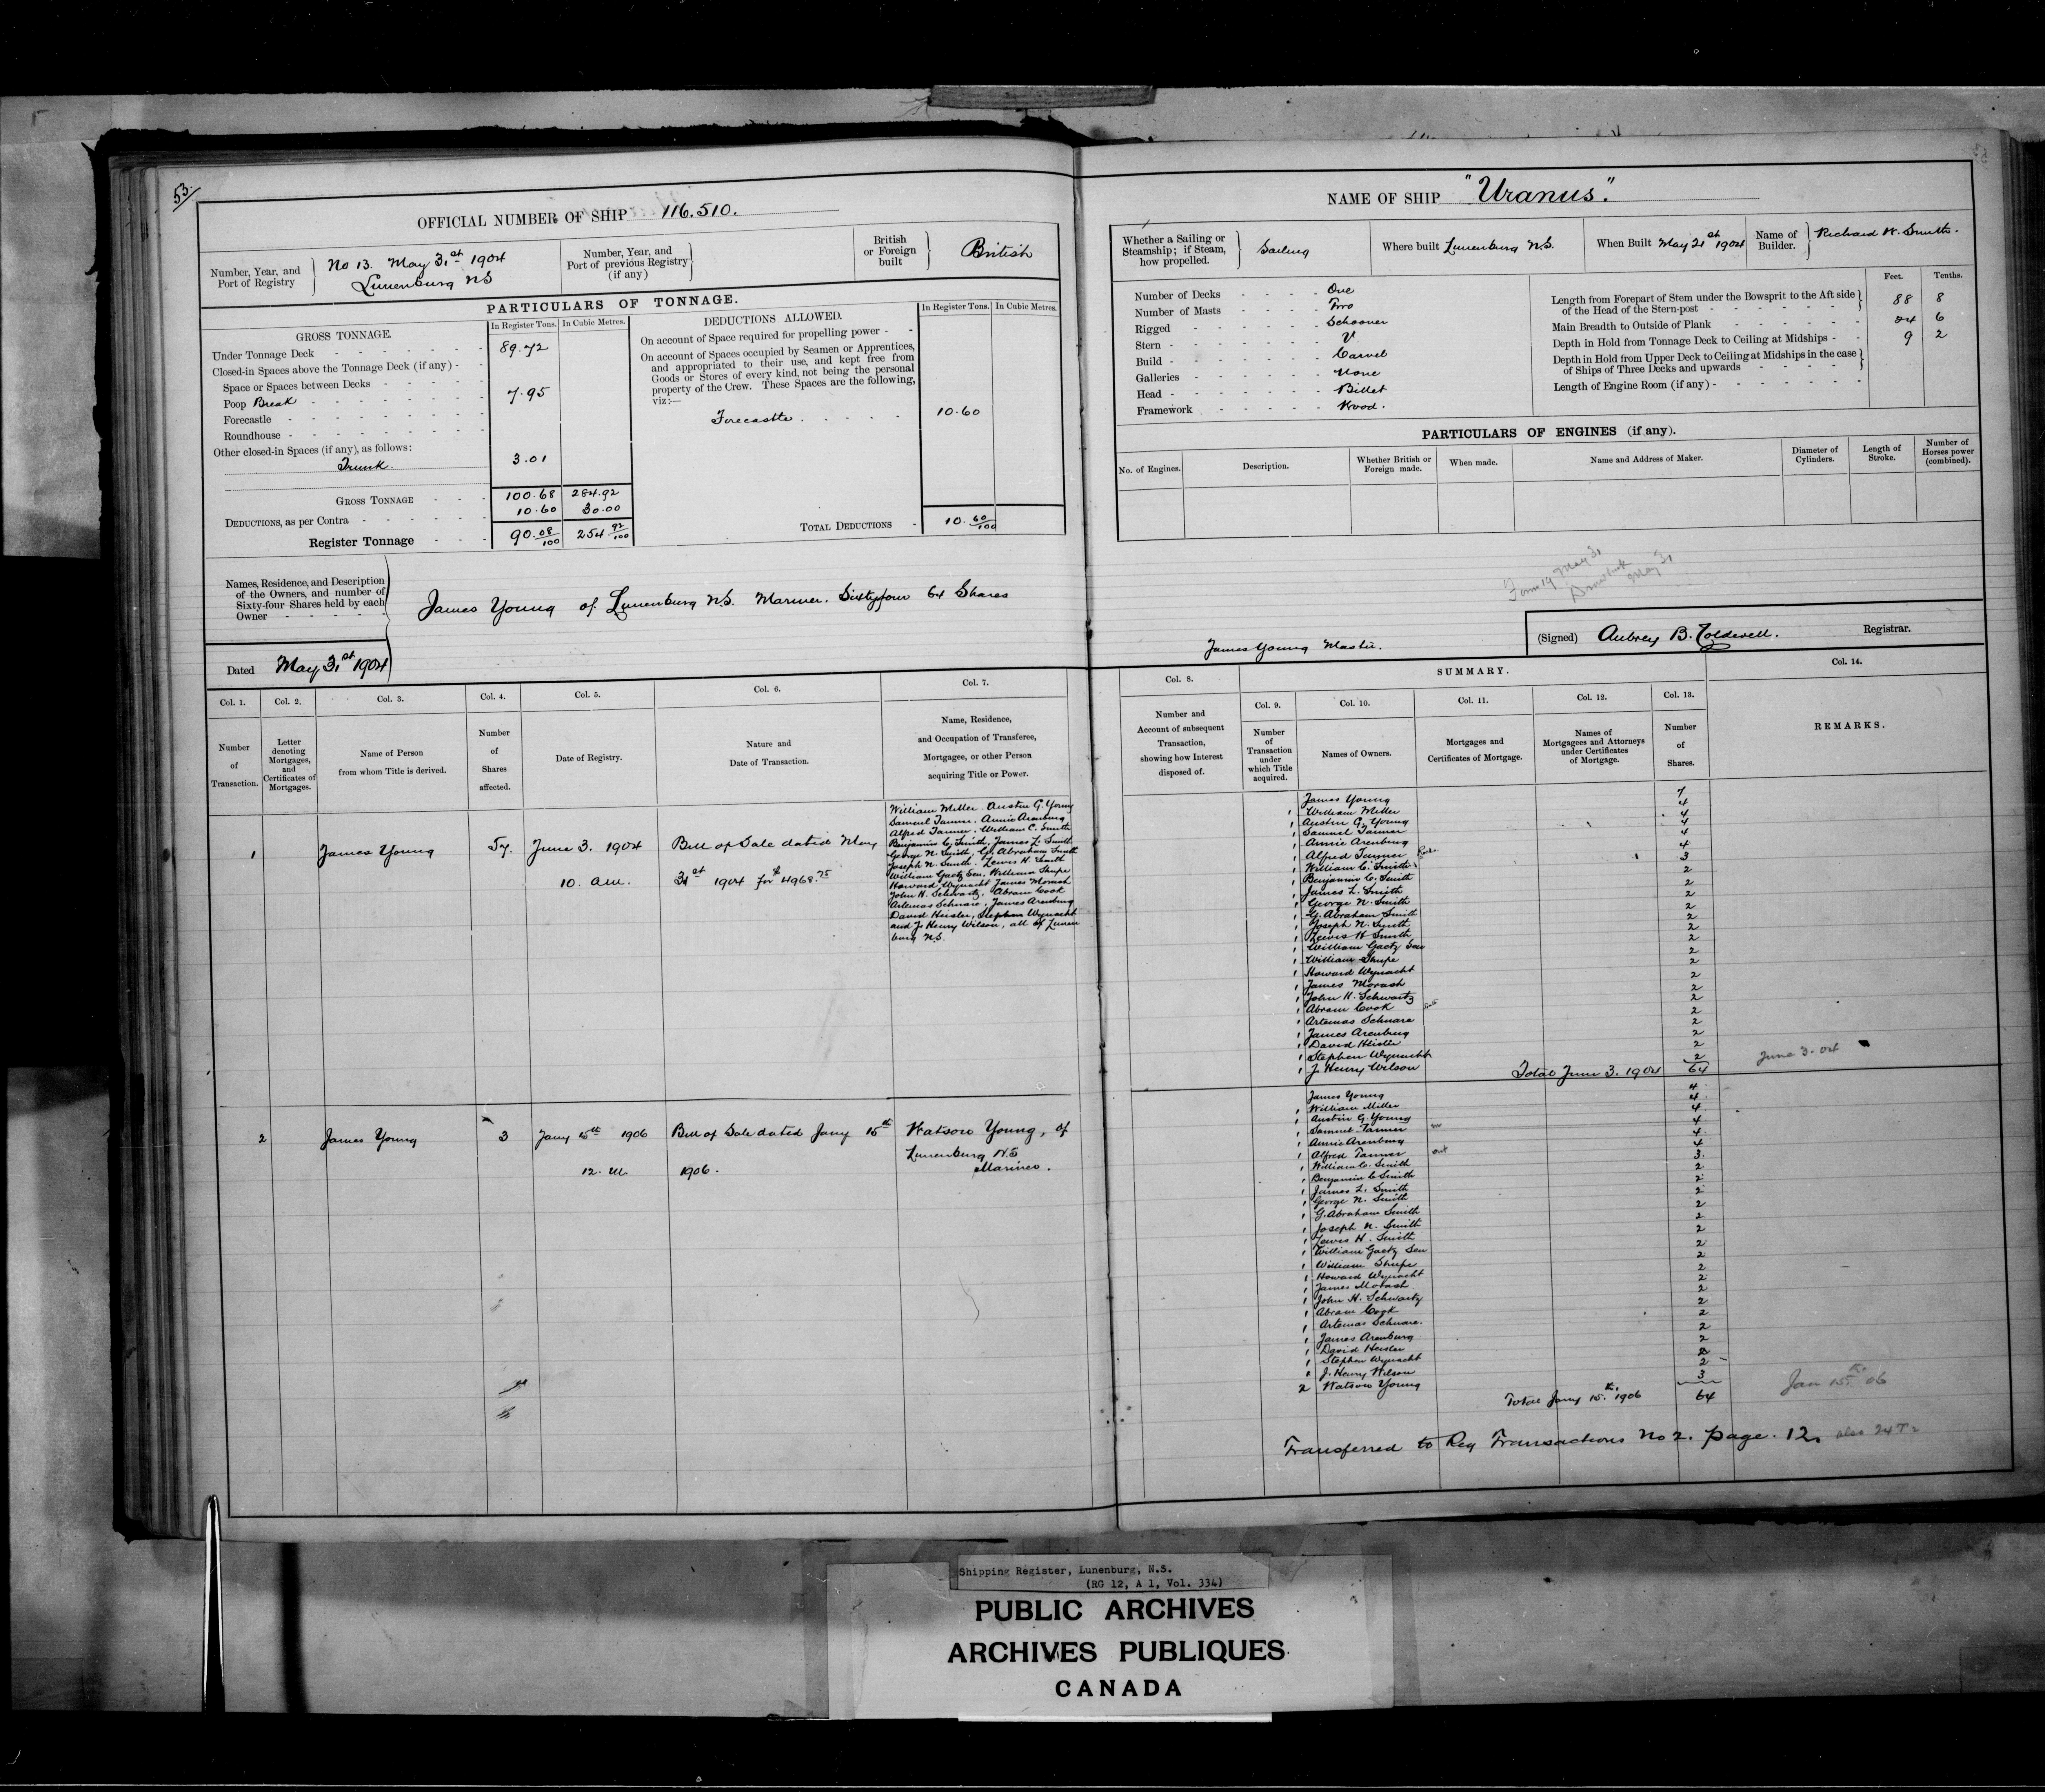 53
OFFICIAL NUMBER OF SHIP 116.510.
Number, Year, and Port of Registry No 13. May 31st 1904 Lunenburg NS
Number, Year, and Port of previous Registry (if any)
British or Foreign built British
PARTICULARS OF TONNAGE.
GROSS TONNAGE.
In Register Tons. In Cubic Metres.
Under Tonnage Deck 89.72
Closed-in Spaces above the Tonnage Deck (if any)
Space or Spaces between Decks
Poop Break 7.95
Forecastle
Roundhouse
Other closed-in Spaces (if any), as follows:
Trunk. 3.01
GROSS TONNAGE 100.68 284.92
DEDUCTIONS, as per Contra 10.60 30.00
Register Tonnage 90.08/100 254.92/100
DEDUCTIONS ALLOWED.
In Register Tons. In Cubic Metres.
On account of Space required for propelling power
On account of Spaces occupied by Seamen or Apprentices,
and appropriated to their use, and kept free from
Goods or Stores of every kind, not being the personal
property of the Crew. These Spaces are the following,
viz:—
Forecastle. 10.60
TOTAL DEDUCTIONS 10.60/100
Names, Residence, and Description
of the Owners, and number of
Sixty-four Shares held by each
Owner
James Young of Lunenburg N.S. Mariner. Sixtyfour 64 Shares
Dated May 31st 1904
Col. 1. Col. 2. Col. 3. Col. 4. Col. 5. Col. 6. Col. 7.
Number of Transaction.
Letter denoting Mortgages, and Certificates of Mortgages.
Name of Person from whom Title is derived.
Number of Shares affected.
Date of Registry.
Nature and Date of Transaction.
Name, Residence, and Occupation of Transferee, Mortgagee, or other Person acquiring Title or Power.
1 James Young 57. June 3. 1904 10. a.m. Bill of Sale dated May 31st 1904 for $4968.75
William Miller. Austin G. Young
Samuel Tanner. Annie Arenburg
Alfred Tanner. William C. Smith
Benjamin C. Smith, James L. Smith
George N. Smith, G. Abraham Smith
Joseph N. Smith. Lewis H. Smith
William Gaetz Sen, William Shupe
Howard Wynacht James Morash
John H. Schwartz, Abram Cook
Artemas Schnare, James Arenburg
David Heisler, Stephen Wynacht
and J. Henry Wilson, all of Lunen
burg N.S.
2 James Young 3 Jany 15th 1906 12. M. Bill of Sale dated Jany 15th 1906.
Watson Young, of
Lunenburg N.S
Mariner.
NAME OF SHIP "Uranus".
Whether a Sailing or Steamship; if Steam, how propelled. Sailing
Where built Lunenburg N.S.
When Built May 21st 1904
Name of Builder. Richard W. Smith.
Number of Decks One
Number of Masts Two
Rigged Schooner
Stern V
Build Carvel
Galleries None
Head Billet
Framework Wood.
Feet. Tenths.
Length from Forepart of Stem under the Bowsprit to the Aft side of the Head of the Stern-post 88 8
Main Breadth to Outside of Plank 24 6
Depth in Hold from Tonnage Deck to Ceiling at Midships 9 2
Depth in Hold from Upper Deck to Ceiling at Midships in the case of Ships of Three Decks and upwards
Length of Engine Room (if any)
PARTICULARS OF ENGINES (if any).
No. of Engines. Description. Whether British or Foreign made. When made. Name and Address of Maker. Diameter of Cylinders. Length of Stroke. Number of Horses power (combined).
Form 19 May 31
May 31
James Young Master.
(Signed) Aubrey B. Registrar.
SUMMARY.
Col. 8. Col. 9. Col. 10. Col. 11. Col. 12. Col. 13. Col. 14.
Number and Account of subsequent Transaction, showing how Interest disposed of.
Number of Transaction under which Title acquired.
Names of Owners.
Mortgages and Certificates of Mortgage.
Names of Mortgagees and Attorneys under Certificates of Mortgage.
Number of Shares.
REMARKS.
James Young 7
1 William Miller 4
1 Austin G. Young 4
1 Samuel Tanner 4
1 Annie Arenburg 4
1 Alfred Tanner 4
1 William C. Smith 3
1 Benjamin C. Smith 2
1 James L. Smith 2
1 George N. Smith 2
1 G. Abraham Smith 2
1 Joseph N. Smith 2
1 Lewis H Smith 2
1 William Gaetz Sen 2
1 William Shupe 2
1 Howard Wynacht 2
1 James Morash 2
1 John H. Schwartz 2
1 Abram Cook 2
1 Artemas Schnare 2
1 James Arenburg 2
1 David Heisler 2
1 Stephen Wynacht 2
1 J. Henry Wilson 2
Total June 3. 1904 64 June 3. 04
James Young 4
1 William Miller 4
1 Austin G. Young 4
1 Samuel Tanner 4
1 Annie Arenburg 4
1 Alfred Tanner 4
1 William C. Smith 3
1 Benjamin C Smith 2
1 James L. Smith 2
1 George N. Smith 2
1 G. Abraham Smith 2
1 Joseph N. Smith 2
1 Lewis H. Smith 2
1 William Gaetz Sen 2
1 William Shupe 2
1 Howard Wynacht 2
1 James Morash 2
1 John H. Schwartz 2
1 Abram Cook 2
1 Artemas Schnare. 2
1 James Arenburg 2
1 David Heisler 2
1 Stephen Wynacht 2
1 J. Henry Wilson 2
2 Watson Young 3
Total Jany 15.th 1906 64 Jan 15th 06
Transferred to Reg Transactions No 2. page. 12. also 24
Shipping Register, Lunenburg, N.S.
(RG 12, A 1, Vol. 334)
PUBLIC ARCHIVES
ARCHIVES PUBLIQUES
CANADA